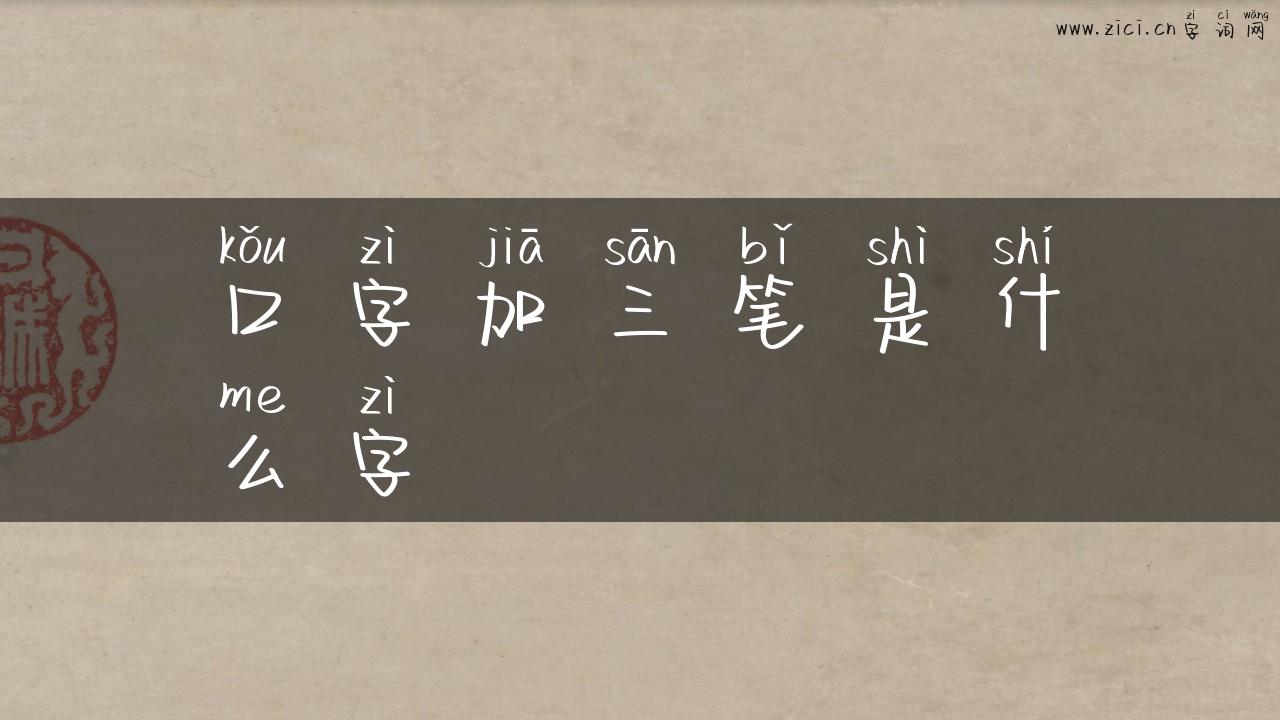 zì cí wǎng
www.zici.cn 字 词 网
kǒu zì jiā sān bǐ shì shí
口 字 加 三 笔 是 什
me zì
么 字